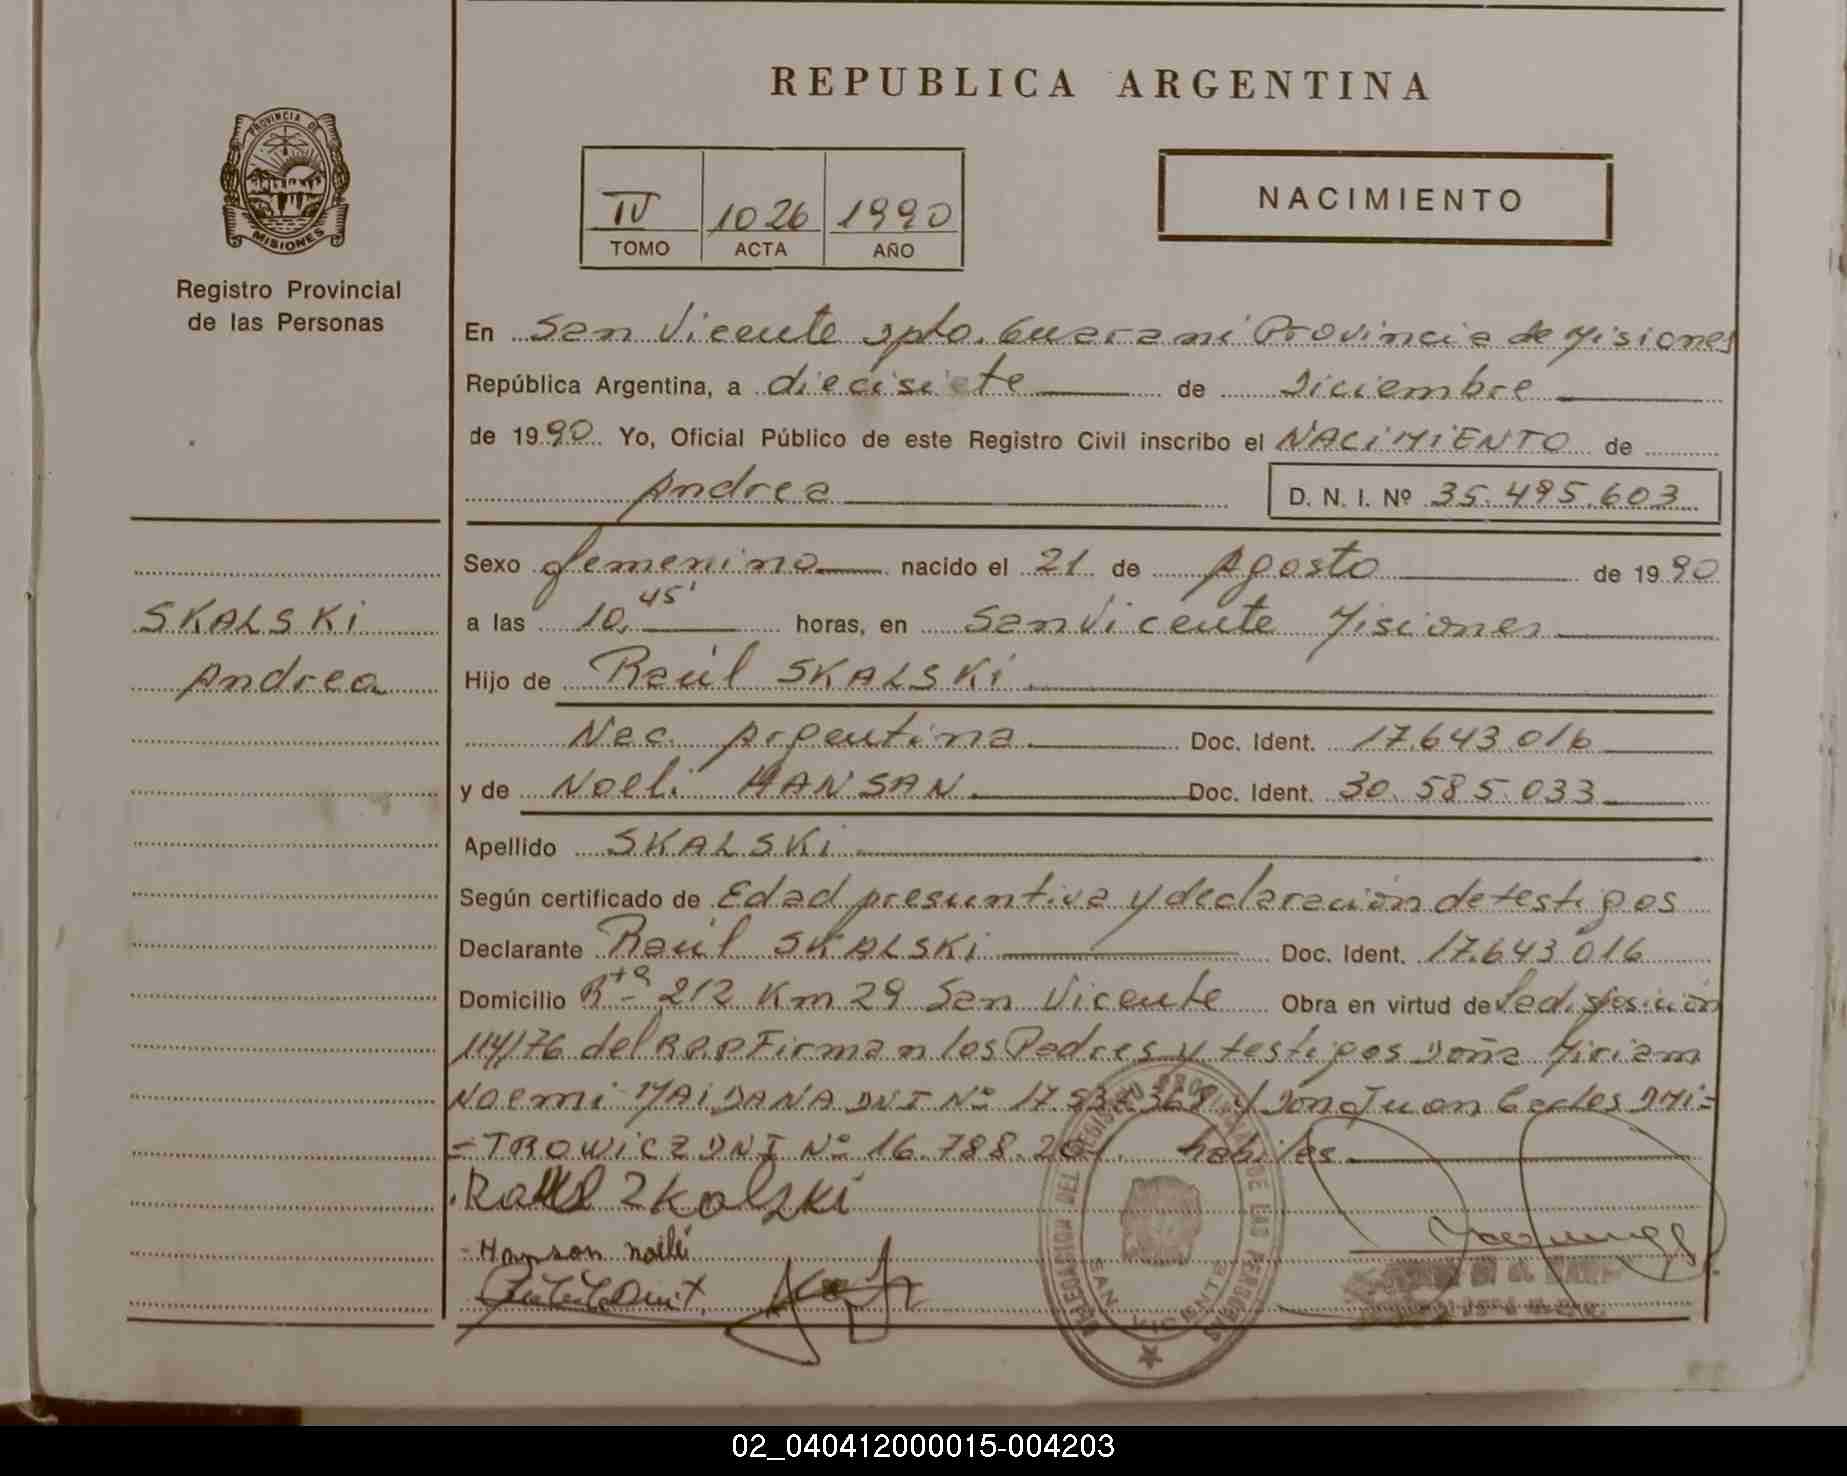 REPUBLICA ARGENTINA
PROVINCIA DE
MISIONES
Registro Provincial
de las Personas
IV 1026 1990
TOMO ACTA AÑO
NACIMIENTO
En San Vicente Dpto. Guarani Provincia de Misiones
República Argentina, a diecisiete de Diciembre
de 1990 Yo, Oficial Público de este Registro Civil inscribo el NACIMIENTO de
Andrea D. N. I. Nº 35.495.603
SKALSKI
Andrea
Sexo femenino nacido el 21 de Agosto de 1990
a las 10,45' horas, en San Vicente Misiones
Hijo de Raúl SKALSKI
Nac. Argentina Doc. Ident. 17.643.016
y de Noeli HANSAN Doc. Ident. 30.585.033
Apellido SKALSKI
Según certificado de Edad presuntiva y declaración de testigos
Declarante Raúl SKALSKI Doc. Ident. 17.643.016
Domicilio Rta 212 Km 29 San Vicente Obra en virtud de la disposición
114/76 del R.P.P Firman los Padres y testigos Doña Miriam
Noemi MAIDANA DNI Nº 17.537.368 y Don Juan Carlos DMI=
=TROWICZ DNI Nº 16.788.201. habiles
Raul Skalski
Hanson noeli
DELEGACION DEL REGISTRO PROVINCIAL DE LAS PERSONAS
SAN VICENTE
02_040412000015-004203